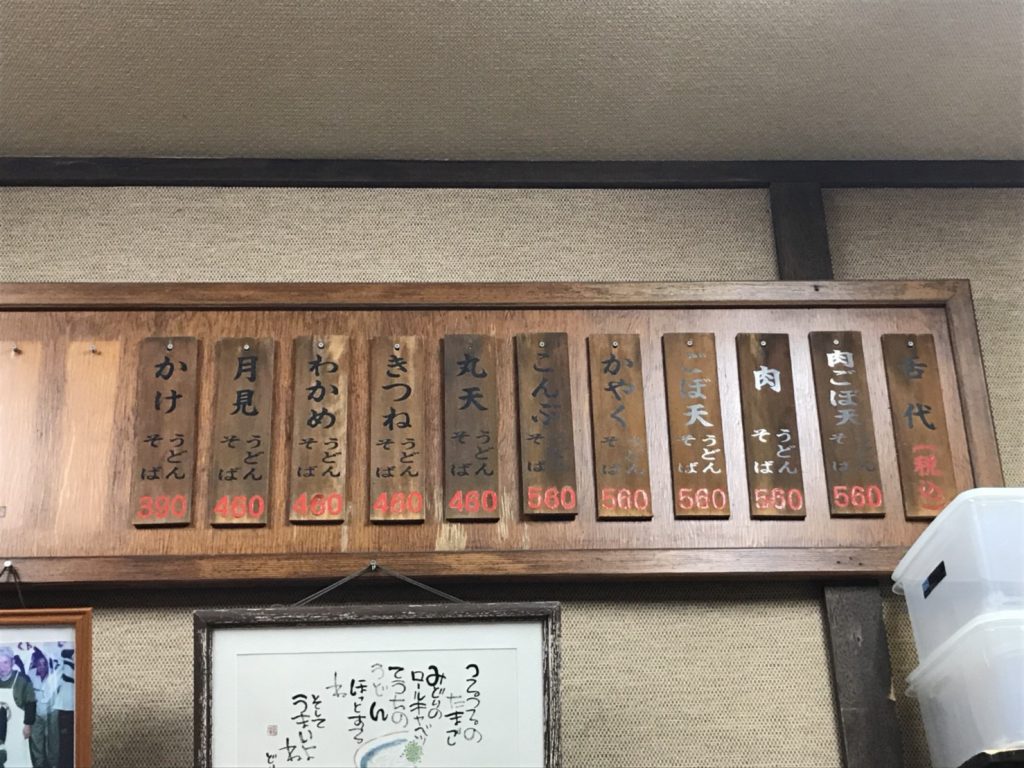 舌代
(税込)
肉ごぼ天
うどん
そば
560
肉
うどん
そば
560
ごぼ天
うどん
そば
560
かやく
うどん
そば
560
こんぶ
うどん
そば
560
丸天
うどん
そば
460
きつね
うどん
そば
460
わかめ
うどん
そば
460
月見
うどん
そば
460
かけ
うどん
そば
390
つるつるの
たまご
みどりの
ロールキャベツ
てうちの
うどん
ほっとする
ね
そして
うまいよ
ね